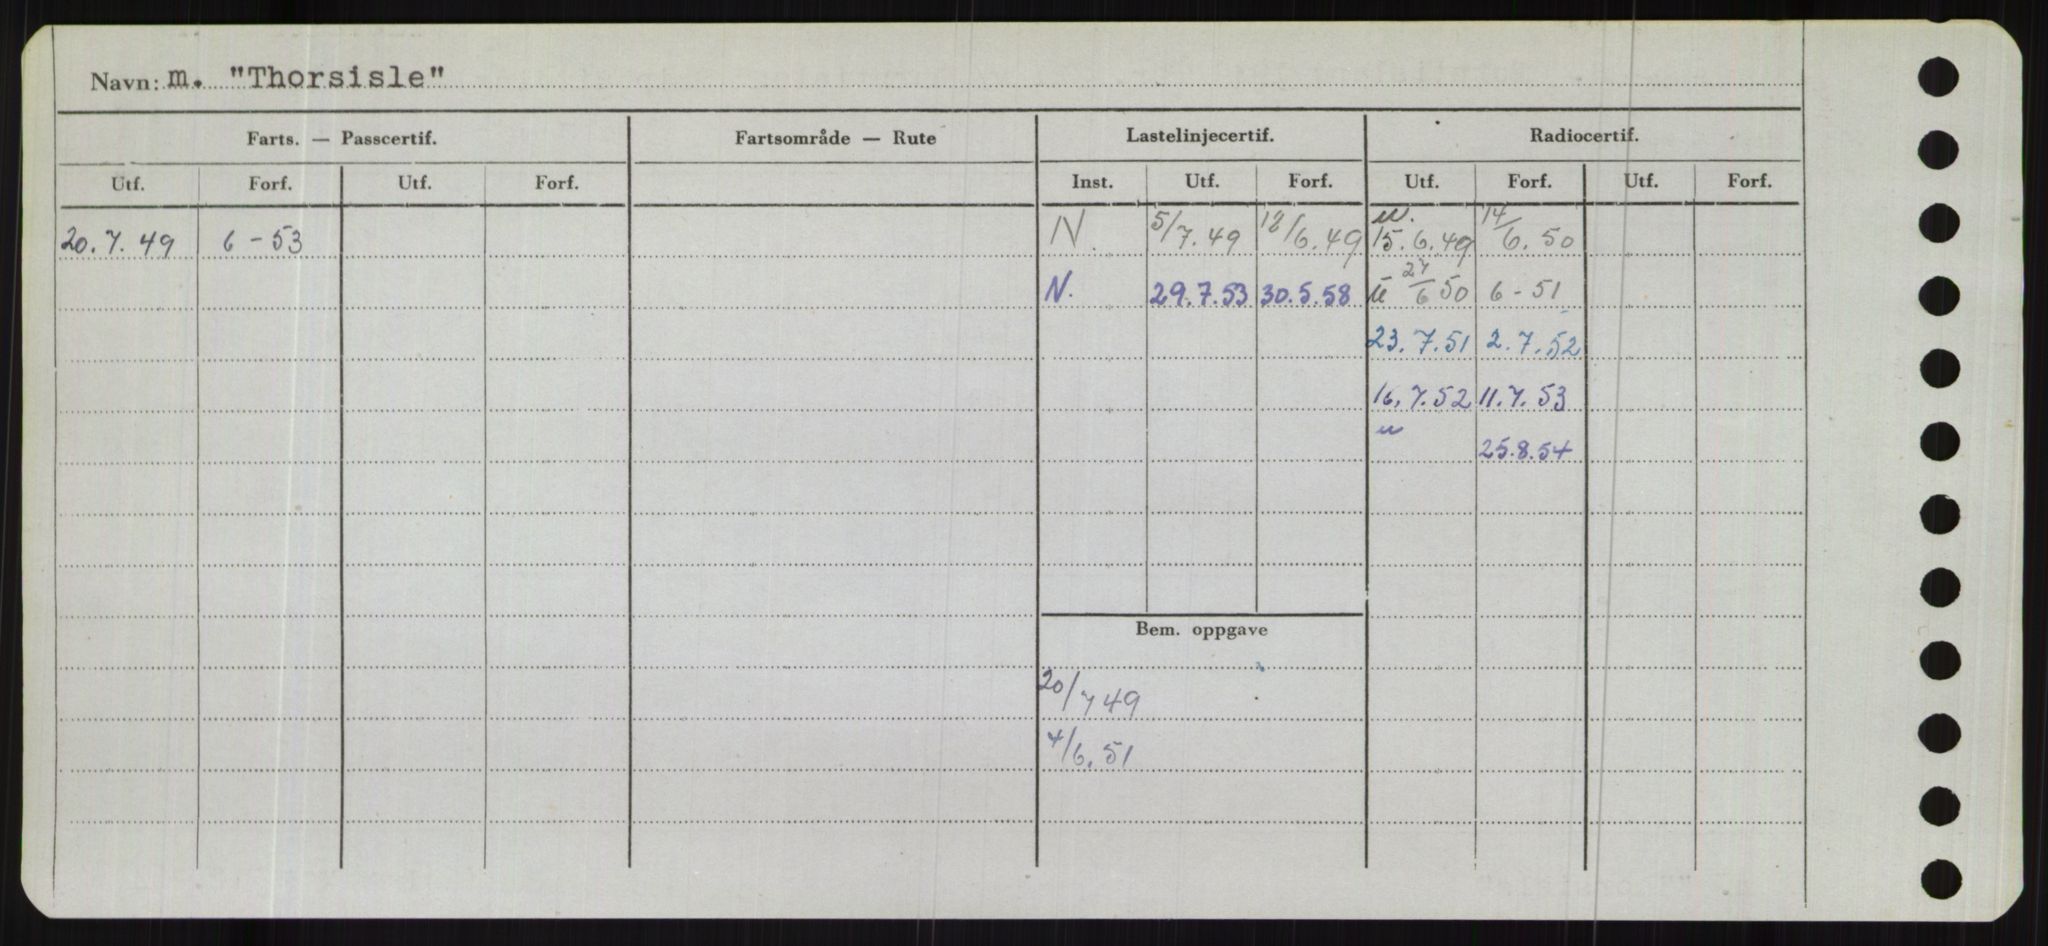 Navn: m. "Thorsisle"
Farts. — Passcertif. Fartsområde — Rute Lastelinjecertif. Radiocertif.
Utf. Forf. Utf. Forf. Inst. Utf. Forf. Utf. Forf. Utf. Forf.
20.7.49 6-53 N. 5/7.49 12/6.49 15.6.49 14/6.50
N. 29.7.53 30.5.58 27/6 50 6-51
23.7.51 2.7.52
16.7.52 11.7.53
25.8.54
Bem. oppgave
20/7 49
4/6.51